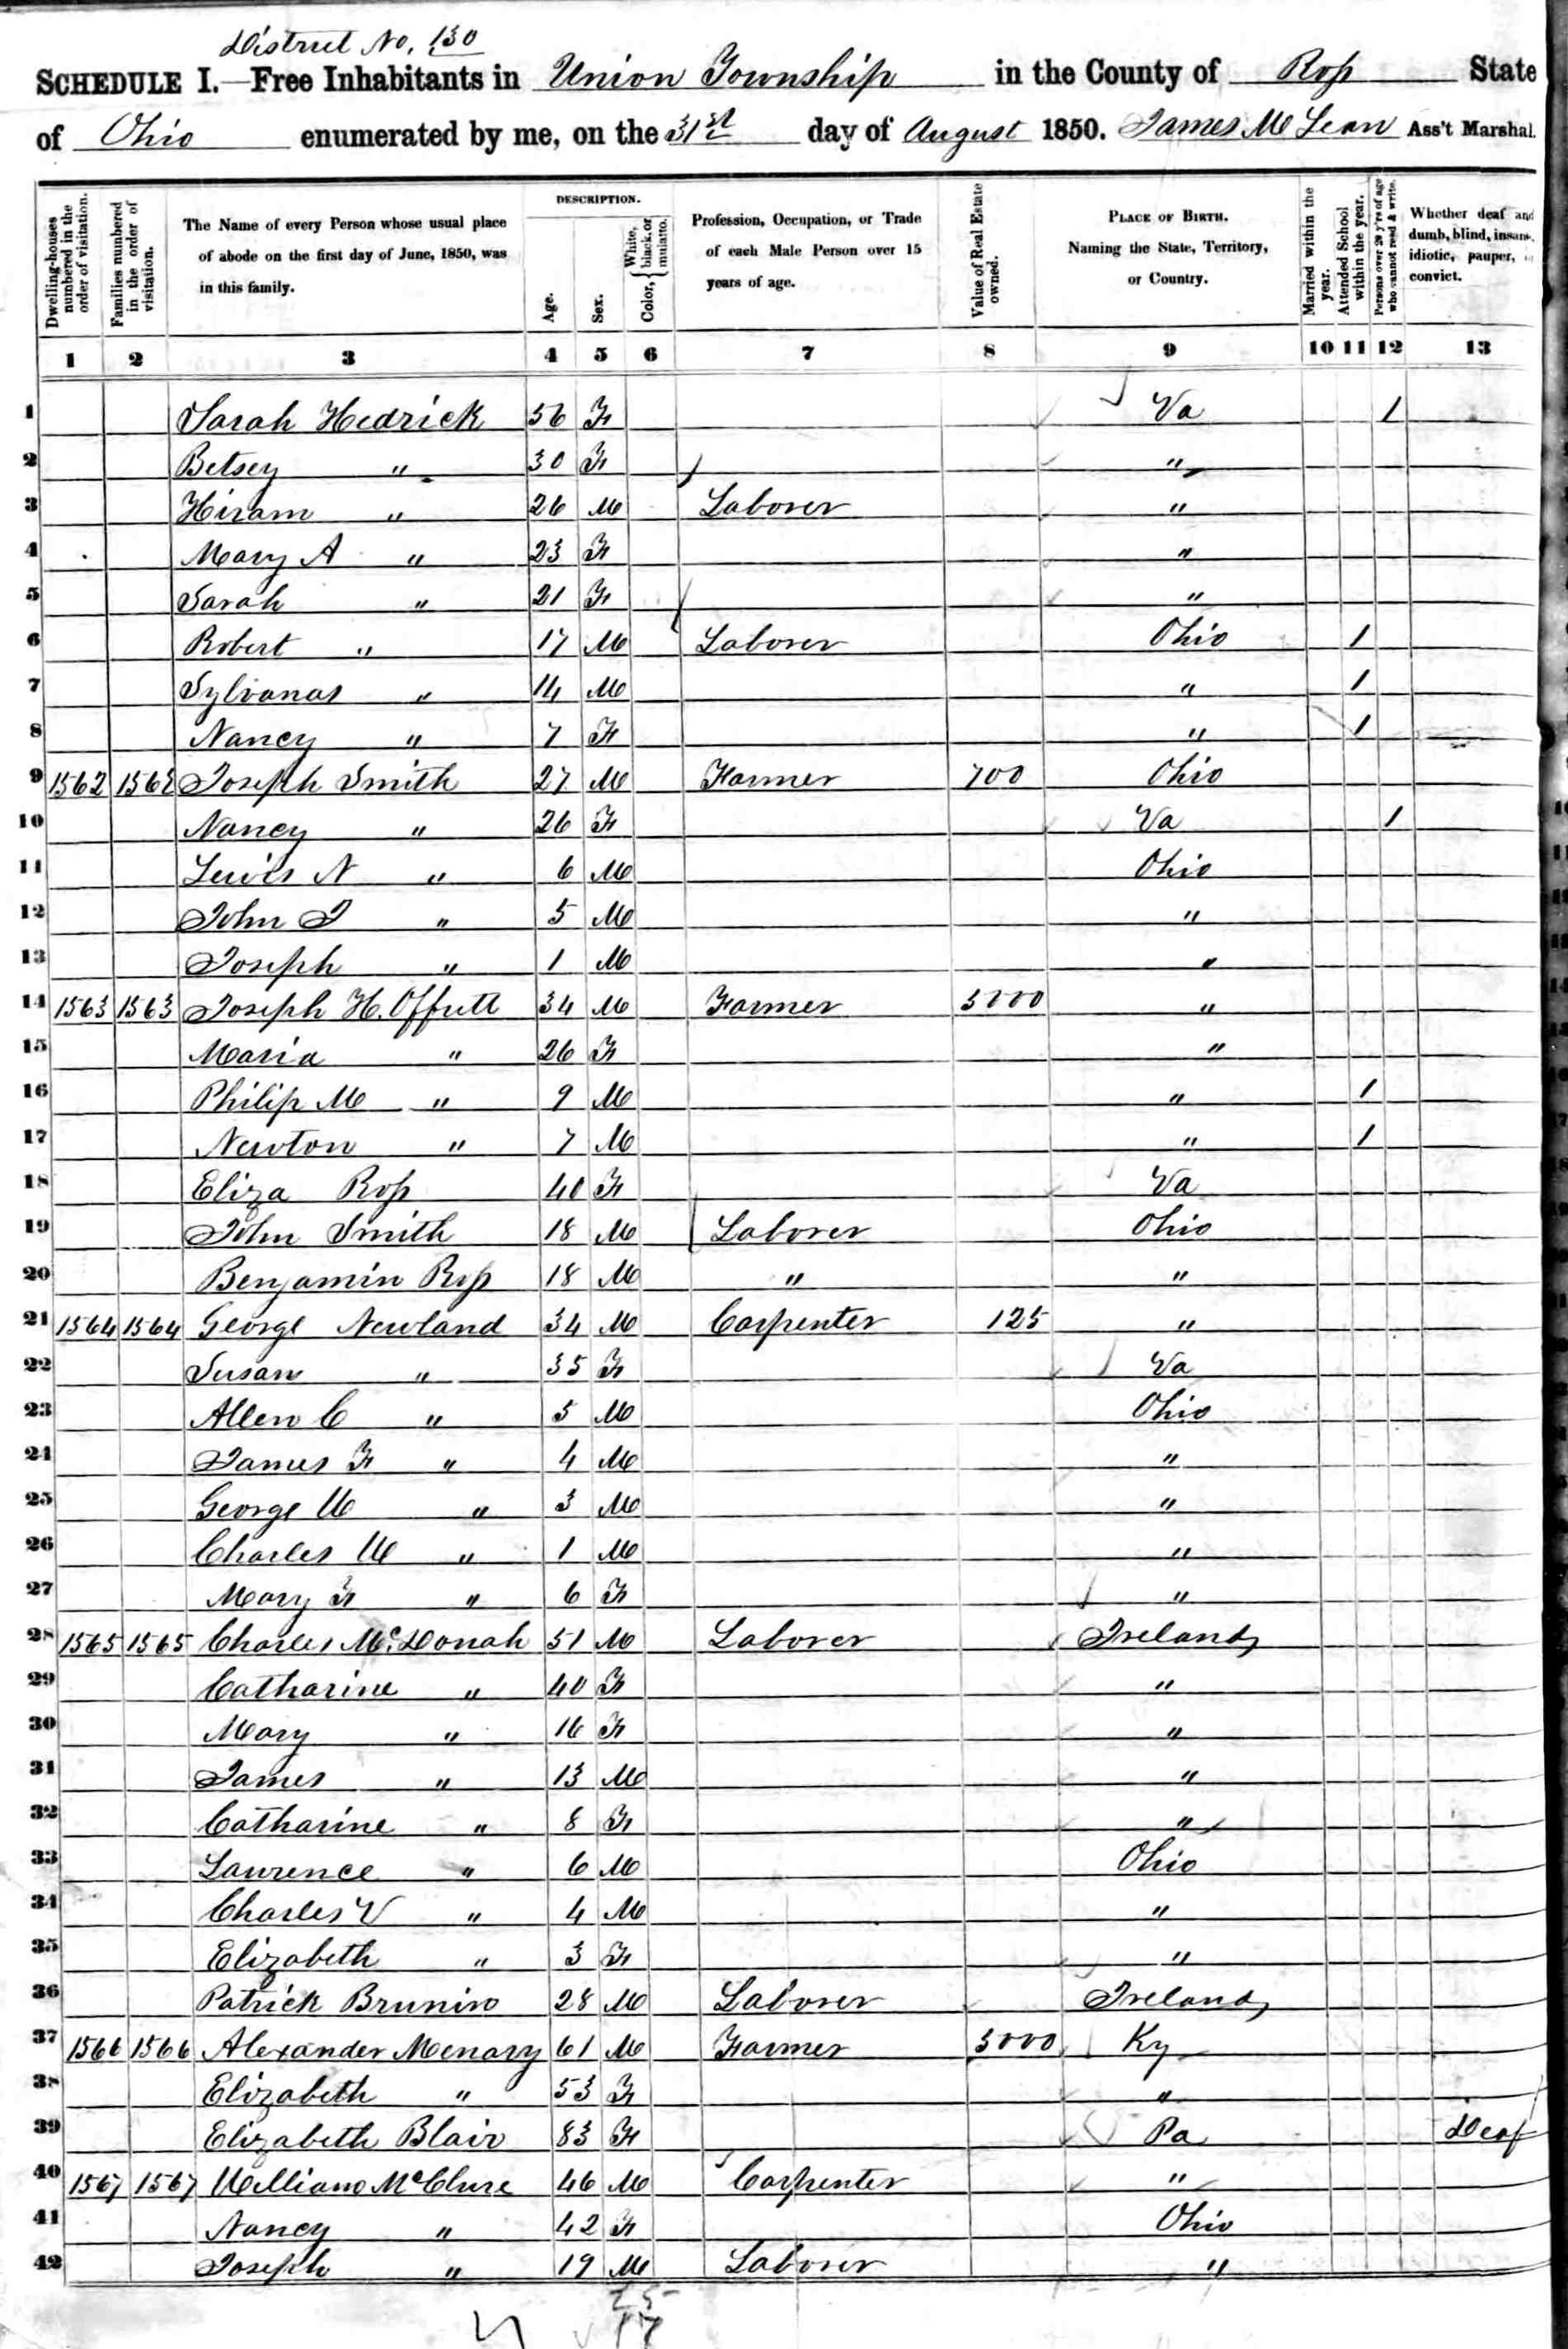 District No. 130
SCHEDULE I.—Free Inhabitants in Union Township in the County of Ross State
of Ohio enumerated by me, on the 31st day of August 1850. James McLean Ass't Marshal.
Dwelling-houses numbered in the order of visitation.
Families numbered in the order of visitation.
The Name of every Person whose usual place of abode on the first day of June, 1850, was in this family.
DESCRIPTION.
Age.
Sex.
Color, { White, black, or mulatto.
Profession, Occupation, or Trade of each Male Person over 15 years of age.
Value of Real Estate owned.
PLACE OF BIRTH. Naming the State, Territory, or Country.
Married within the year.
Attended School within the year.
Persons over 20 y'rs of age who cannot read & write.
Whether deaf and dumb, blind, insane, idiotic, pauper, or convict.
1 2 3 4 5 6 7 8 9 10 11 12 13
1 Sarah Hedrick 56 F Va 1
2 Betsey " 30 F "
3 Hiram " 26 M Laborer "
4 Mary A " 23 F "
5 Sarah " 21 F "
6 Robert " 17 M Laborer Ohio 1
7 Sylvanas " 14 M " 1
8 Nancy " 7 F " 1
9 1562 1562 Joseph Smith 27 M Farmer 700 Ohio
10 Nancy " 26 F Va 1
11 Lewis N " 6 M Ohio
12 John J " 5 M "
13 Joseph " 1 M "
14 1563 1563 Joseph H. Offutt 34 M Farmer 5000 "
15 Maria " 26 F "
16 Philip M " 9 M " 1
17 Newton " 7 M " 1
18 Eliza Ross 40 F Va
19 John Smith 18 M Laborer Ohio
20 Benjamin Ross 18 M " "
21 1564 1564 George Newland 34 M Carpenter 125 "
22 Susan " 35 F Va
23 Allen C " 5 M Ohio
24 James F " 4 M "
25 George W " 3 M "
26 Charles W " 1 M "
27 Mary F " 6 F "
28 1565 1565 Charles McDonah 51 M Laborer Ireland
29 Catharine " 40 F "
30 Mary " 16 F "
31 James " 13 M "
32 Catharine " 8 F "
33 Laurence " 6 M Ohio
34 Charles V " 4 M "
35 Elizabeth " 3 F "
36 Patrick Brunin 28 M Laborer Ireland
37 1566 1566 Alexander Menary 61 M Farmer 3000 Ky
38 Elizabeth " 53 F "
39 Elizabeth Blair 83 F Pa Deaf
40 1567 1567 William McClure 46 M Carpenter "
41 Nancy " 42 F Ohio
42 Joseph " 19 M Laborer "
25
17